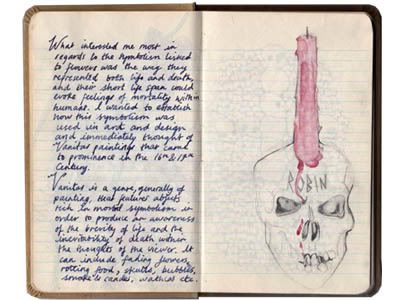 What interested me most in
regards to the symbolism linked
to flowers was the way they
represented both life and death,
and their short life span could
evoke feelings of mortality within
humans. I wanted to establish
how this symbolism was
used in art and design
and immediately thought of
Vanitas paintings that came
to prominence in the 16th & 17th
Century.
Vanitas is a genre, generally of
painting, that features objects
rich in moral symbolism in
order to produce an awareness
of the brevity of life and the
inevitability of death within
the thoughts of the viewer. It
can include fading flowers,
rotting food, skulls, bubbles,
candles, watches etc
ROBIN